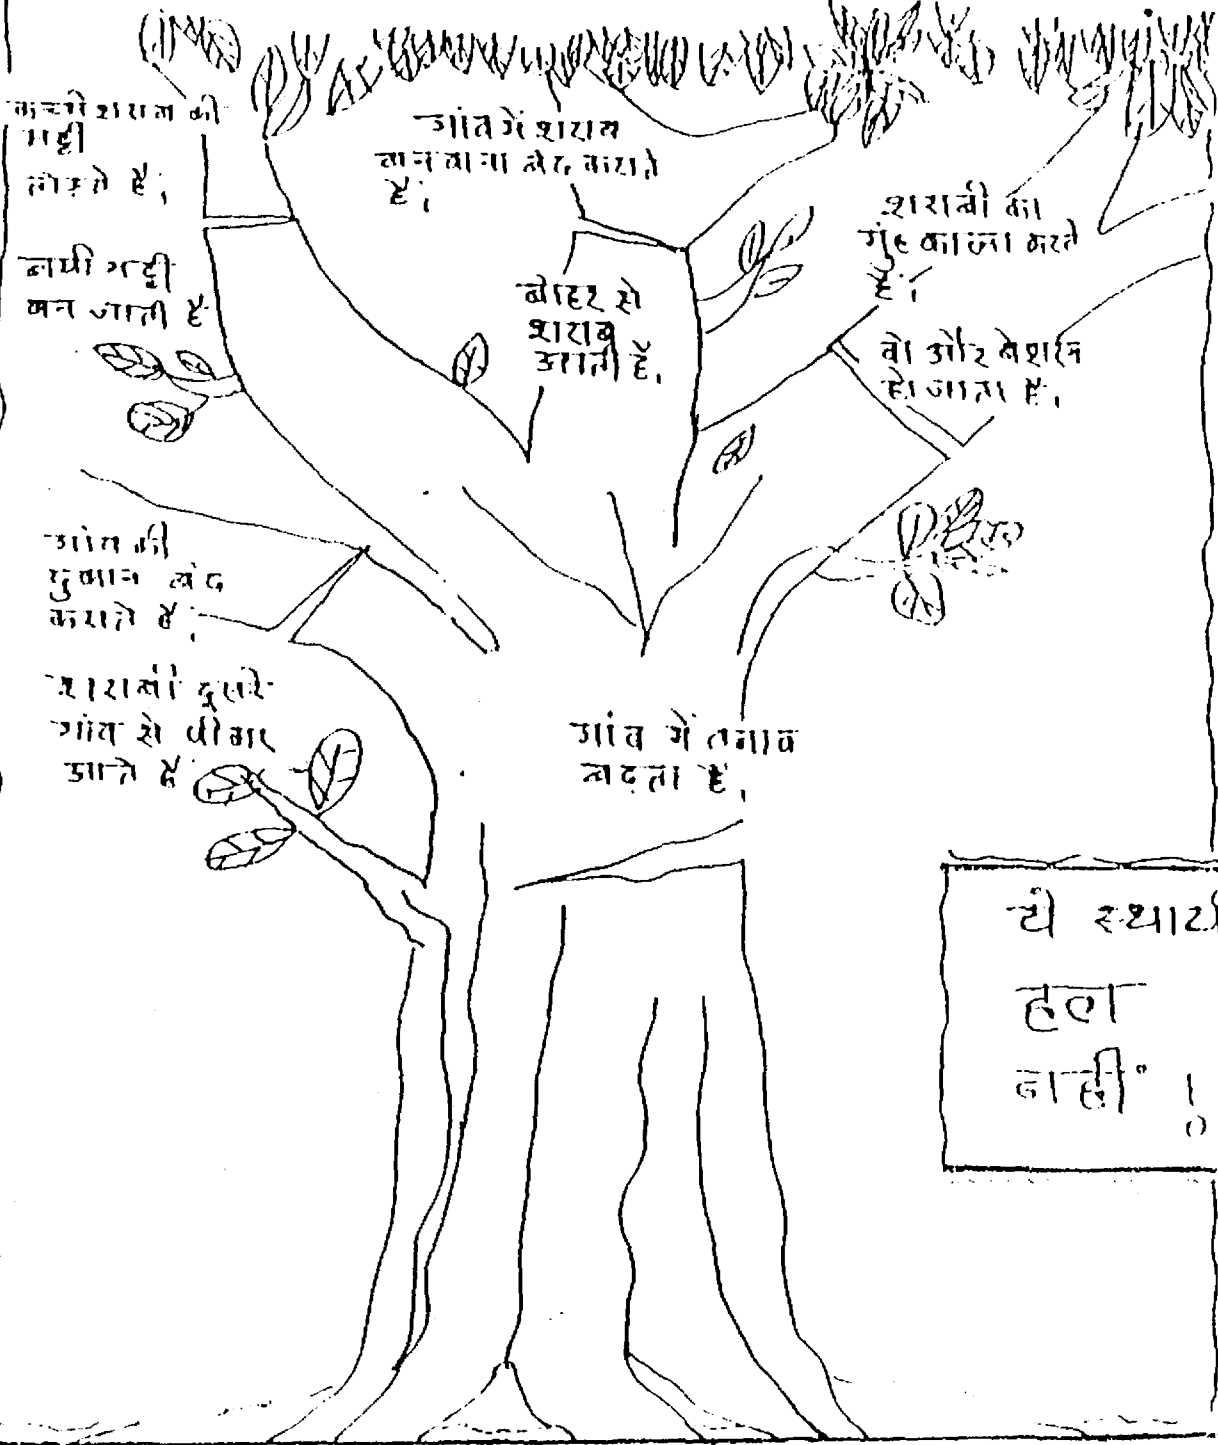 कच्ची शराब की
भट्टी
तोड़ते हैं।
नयी भट्टी
बन जाती है
गांव में शराब
बनवाना बंद कराते
हैं।
बाहर से
शराब
आती है।
शराबी का
मुंह काला करते
हैं।
वो और बेशरम
हो जाता है।
गांव की
दुकान बंद
कराते हैं।
शराबी दूसरे
गांव से पीकर
आते हैं
गांव में तनाव
बढ़ता है।
ये स्थायी
हल
नहीं !